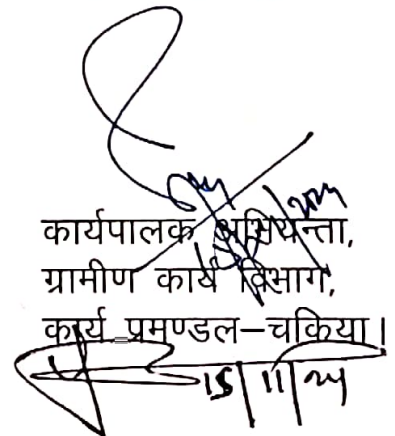 कार्यपालक अभियन्ता,
ग्रामीण कार्य विभाग,
कार्य प्रमण्डल–चकिया।
15/11/24